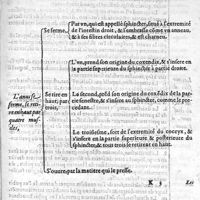 Par un, qui est appellé sphincter, situé à l'extremité
Se ferme,
de l'intestin droit, & l'embrasse côme vn anneau,
& à ses fibres circulaires, & est charneux.
L'vn, prend son origine du coxendix, & s'insere en
la partie superieure du sphincter à partie droite.
L'anus se
ferme, se reti-
re en haut par
quatre mus-
cles,
Se tire en
haut, par
trois,
Le second, préd son origine du coxendix de la par-
tie senestre, & s'insere au sphincter, comme le pre-
cedent.
Le troisiesme, sort de l'extremité du coccyx, &
s'insere en la partie superieure & posterieure du
sphincter, & tous trois le retirent en haut.
S'ouure par la matiere qui le presse.
K 3